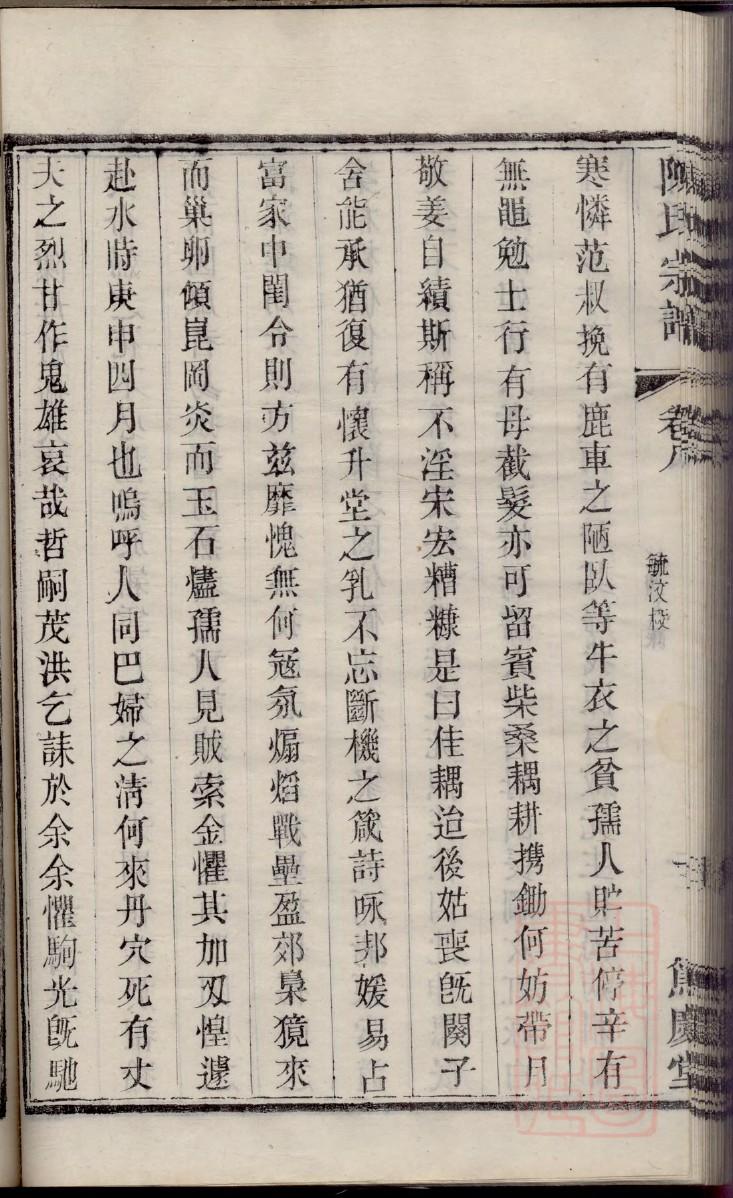 陳氏宗譜
卷首
毓汶校
篤慶堂
寒憐范叔挽有鹿車之陋臥等牛衣之貧孺人貯苦停辛有
無黽勉士行有母截髮亦可留賓柴桑耦耕攜鋤何妨帶月
敬姜自績斯稱不淫宋宏糟糠是曰佳耦迨後姑喪旣闋子
舍能承猶復有懷升堂之乳不忘斷機之箴詩咏邦媛易占
富家中閨令則方玆靡愧無何冦氛煽熖戰壘盈郊梟獍來
而巢卵傾崑岡炎而玉石燼孺人見賊索金懼其加刃惶遽
赴水時庚申四月也嗚呼人同巴婦之清何來丹穴死有丈
夫之烈甘作鬼雄哀哉哲嗣茂洪乞誄於余余懼駒光旣馳